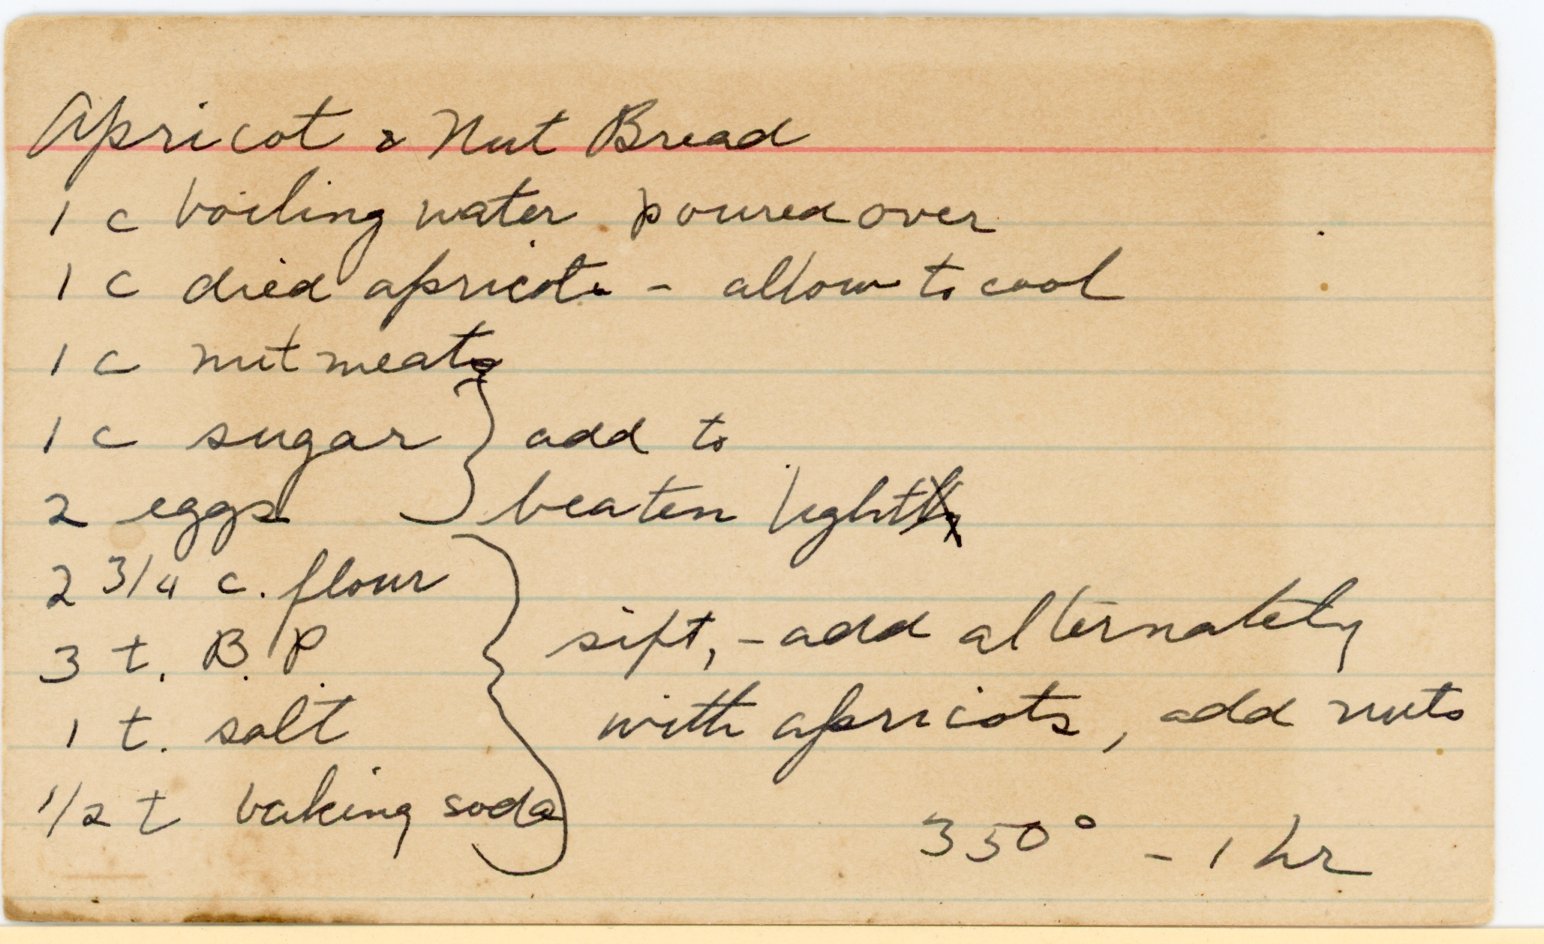 Apricot & Nut Bread
1 c boiling water poured over
1 c dried apricots - allow to cool
1 c nutmeats
1 c sugar } add to
2 eggs } beaten light
2 3/4 c. flour
3 t. B.P. } sift, - add alternately
1 t. salt } with apricots, add nuts
1/2 t baking soda
350° - 1 hr